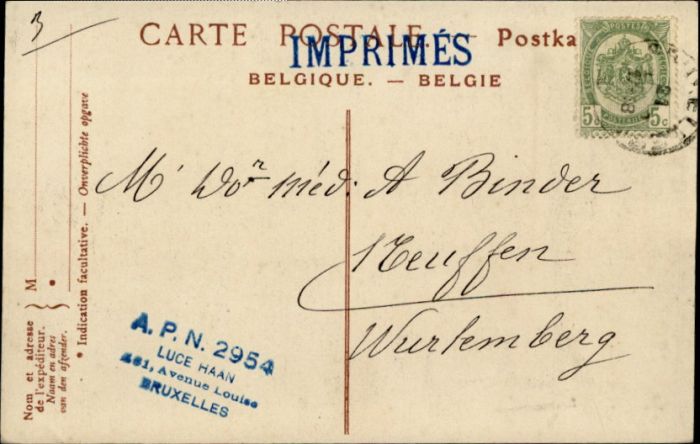 3
CARTE POSTALE. — Postka
IMPRIMÉS
BELGIQUE. — BELGIE
POSTES
5c 5c
M' Dor méd: A Binder
Neuffen
Wurtemberg
A.P.N. 2954
LUCE HAAN
461, Avenue Louise
BRUXELLES
Nom et adresse
de l'expéditeur.
Naam en adres
van den afzender.
M
* Indication facultative. — Onverplichte opgave